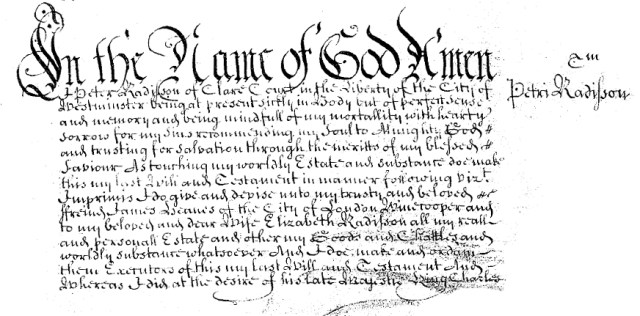 In the Name of God Amen
Tm
Petri Radisson
I Peter Radisson of Clare Court in the Liberty of the City of
Westminster being at present sickly in Body but of perfect sense
and memory and being mindfull of my mortallity with hearty
sorrow for my sins recommending my Soul to Almighty God
and trusting for salvation through the merits of my blessed
Saviour As touching my worldly Estate and substance doe make
this my last Will and Testament in manner following vizt
Imprimis I do give and devise unto my trusty and beloved
ffreind James Heanes of the City of London Winecooper and
to my beloved and dear Wife Elizabeth Radisson all my reall
and personall Estate and other my Goods and Chattles and
worldly substance whatsoever And I doe make and ordain
them Executors of this my last Will and Testament And
Whereas I did at the desire of his late Majestie King Charles